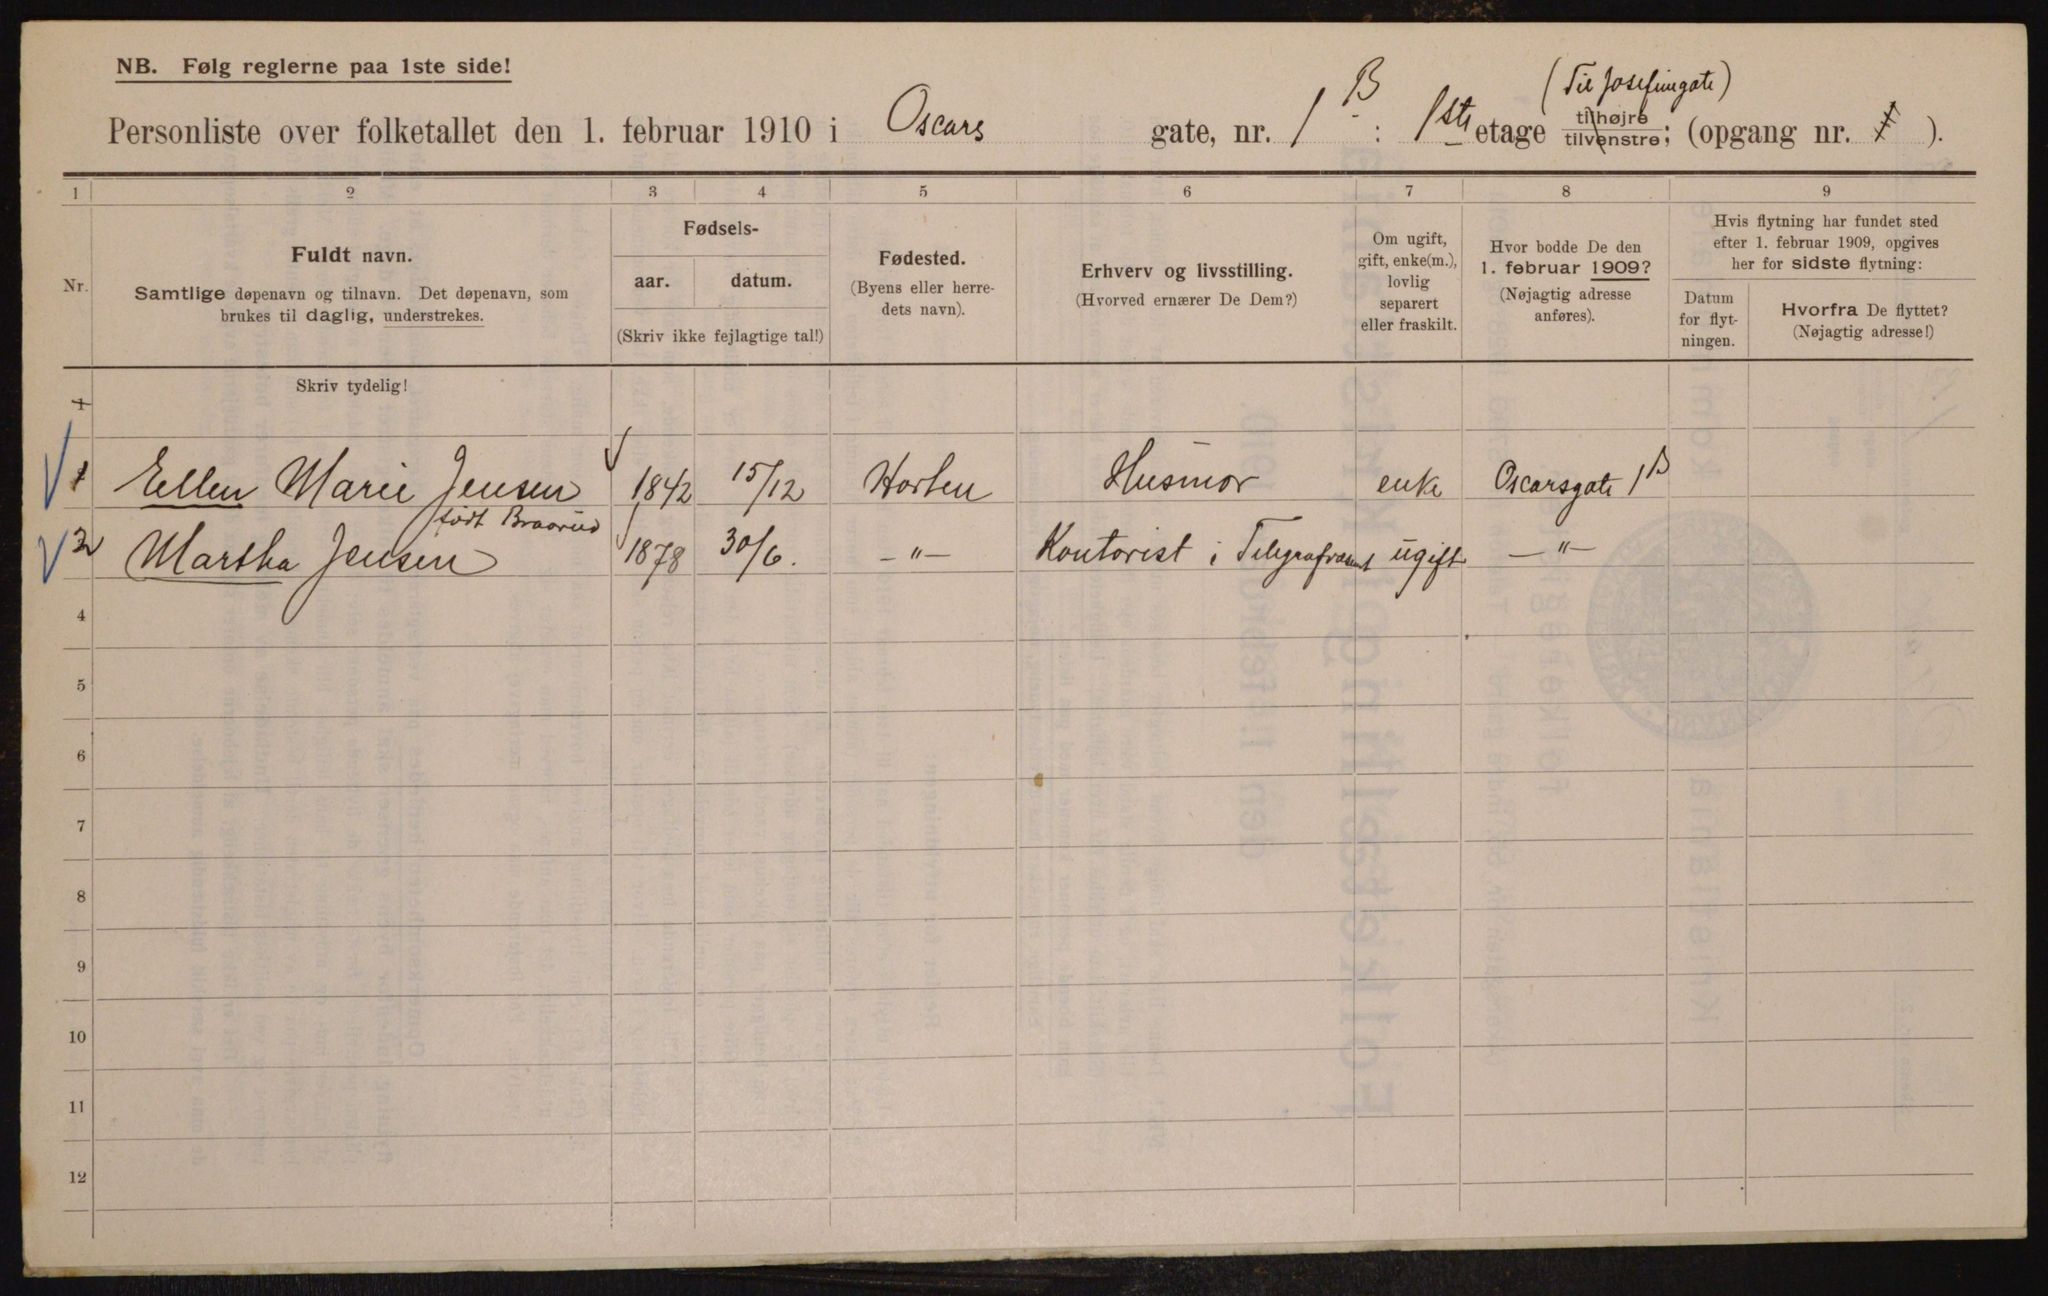 NB. Følg reglerne paa 1ste side!
(Til Josefinegate)
Personliste over folketallet den 1. februar 1910 i Oscars gate, nr. 1 B : 1ste etage tilhøjre tilvenstre; (opgang nr. ).
1 2 3 4 5 6 7 8 9
Nr.
Fuldt navn.
Samtlige døpenavn og tilnavn. Det døpenavn, som
brukes til daglig, understrekes.
Fødsels-
aar. datum.
(Skriv ikke fejlagtige tal!)
Fødested.
(Byens eller herre-
dets navn).
Erhverv og livsstilling.
(Hvorved ernærer De Dem?)
Om ugift,
gift, enke(m.),
lovlig
separert
eller fraskilt.
Hvor bodde De den
1. februar 1909?
(Nøjagtig adresse
anføres).
Hvis flytning har fundet sted
efter 1. februar 1909, opgives
her for sidste flytning:
Datum
for flyt-
ningen.
Hvorfra De flyttet?
(Nøjagtig adresse!)
Skriv tydelig!
1
1 Ellen Marie Jensen 1842 15/12 Horten Husmor enke Oscarsgate 1 B
født Braarud
2 Martha Jensen 1878 30/6. —"— Kontorist i Telegrafvæsnt ugift —"—
4
5
6
7
8
9
10
11
12